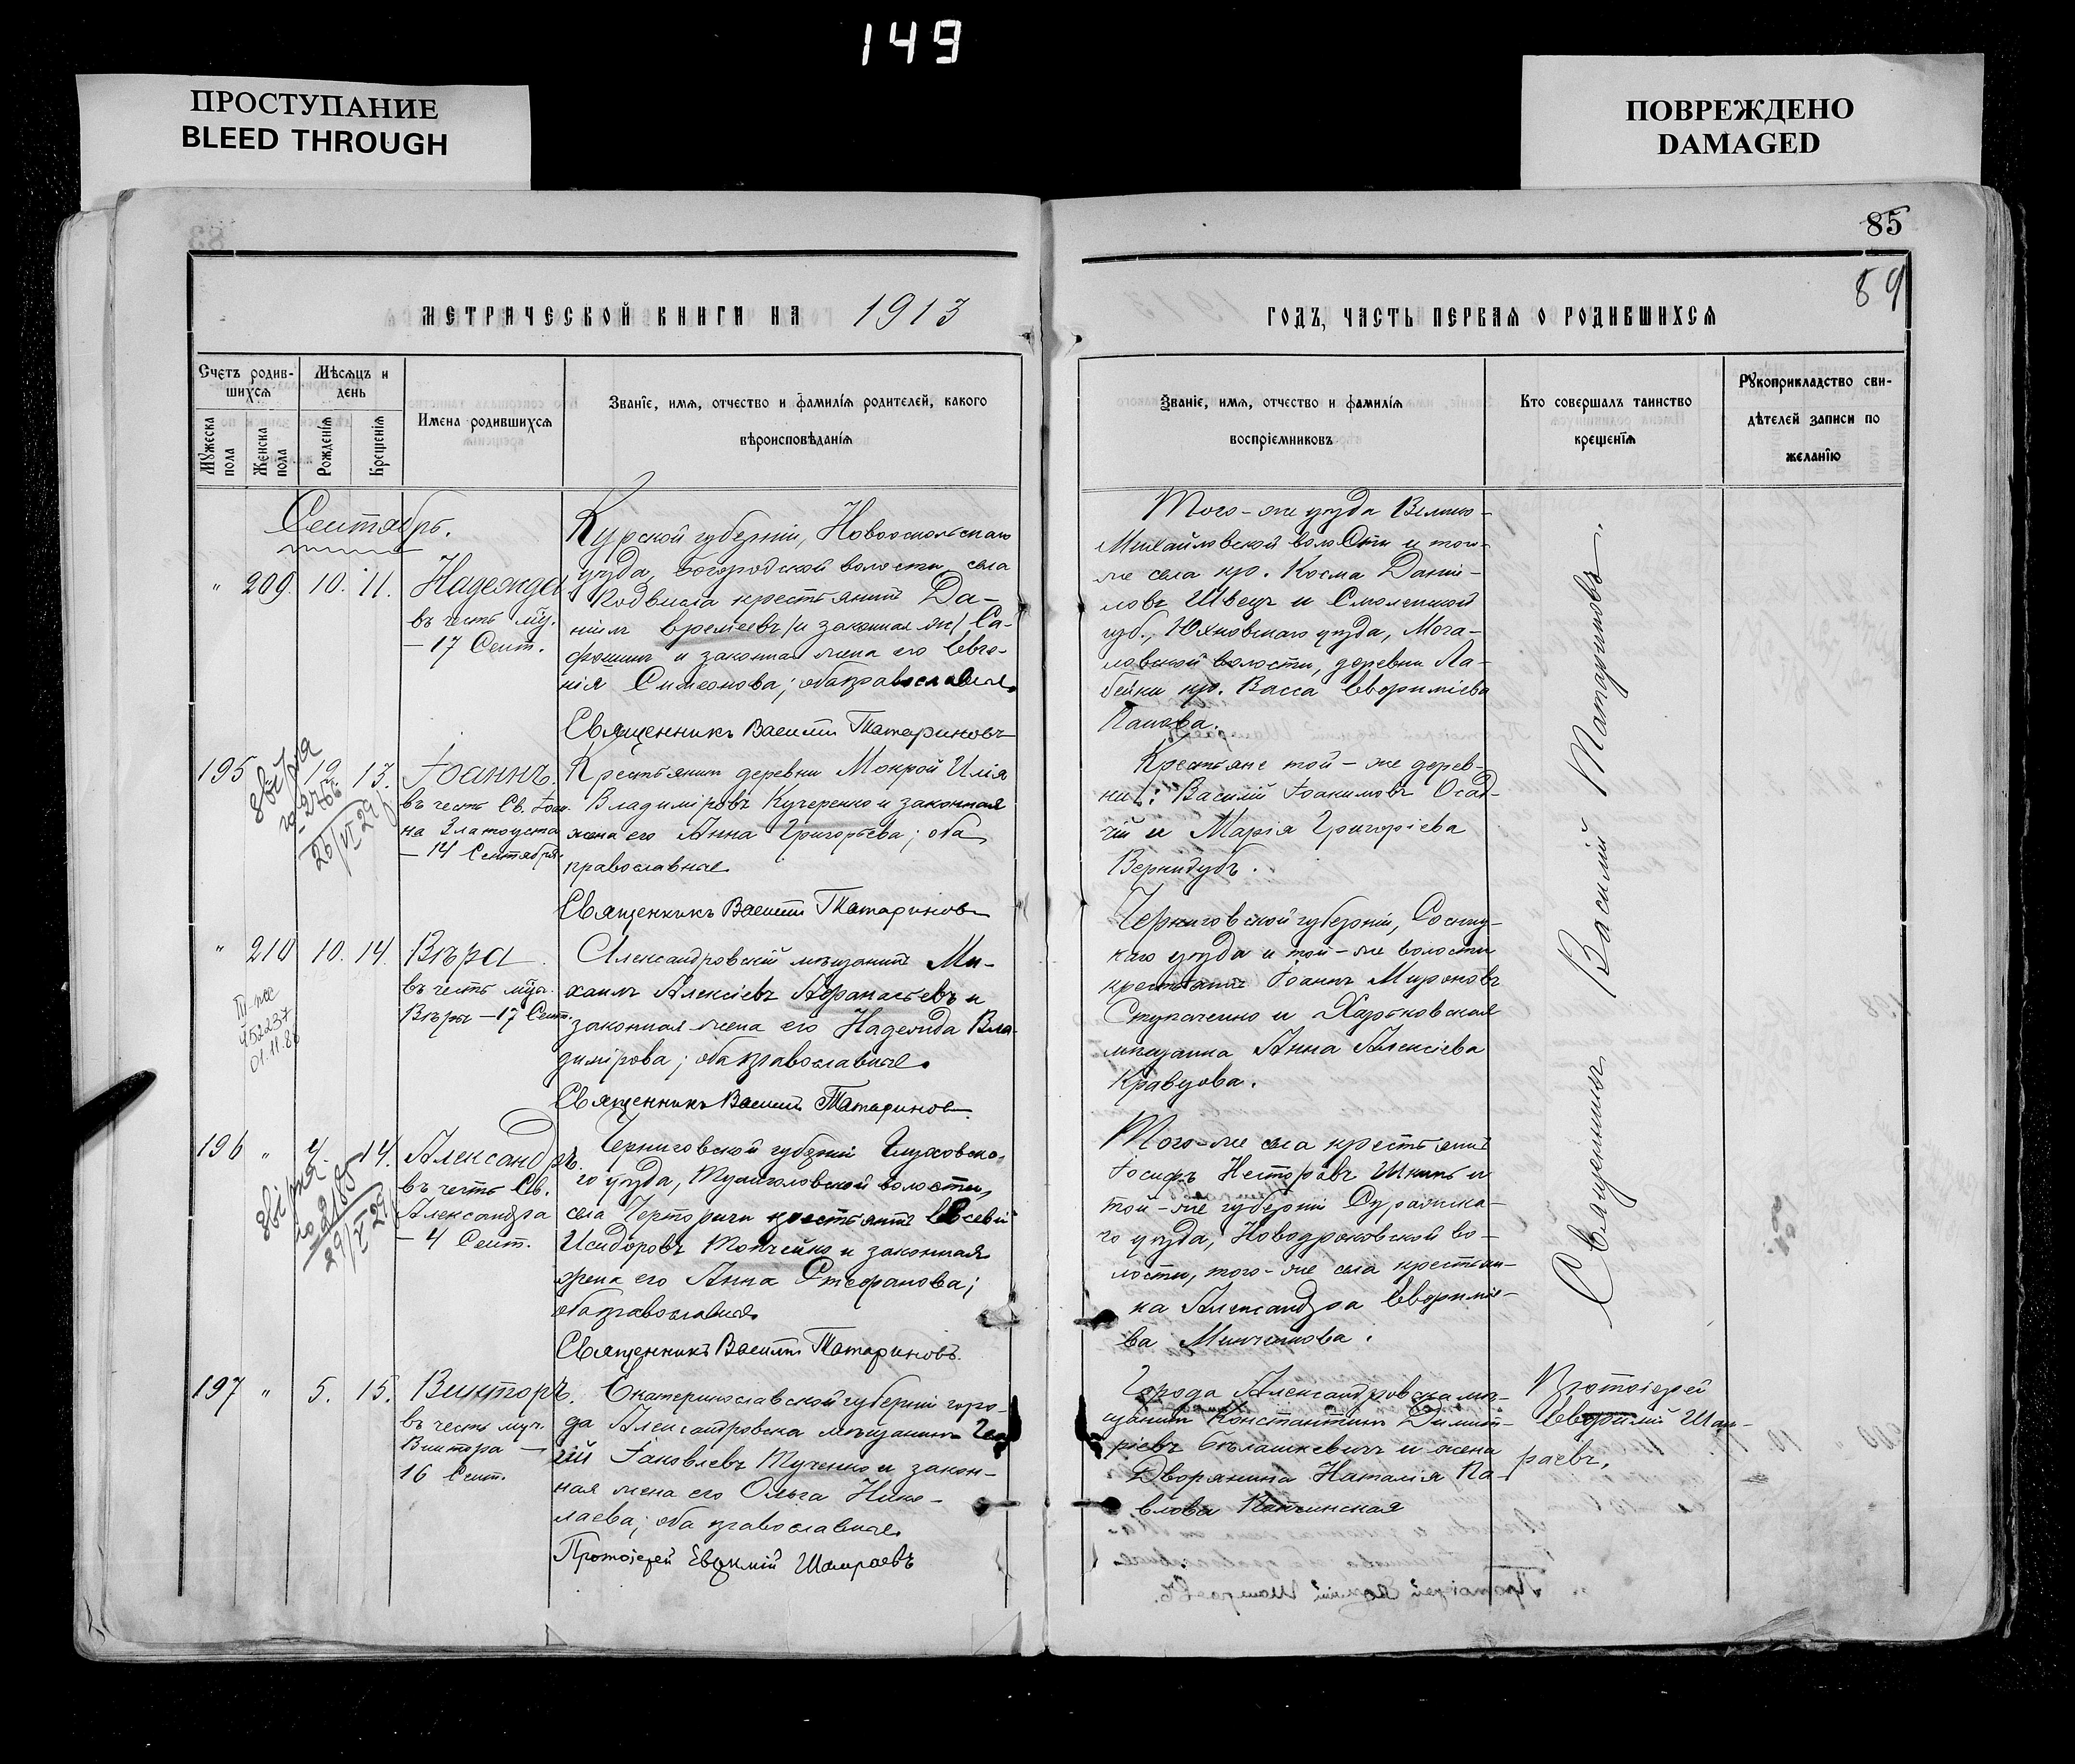 149
ПРОСТУПАНИЕ
BLEED THROUGH
ПОВРЕЖДЕНО
DAMAGED
85
89
МЕТРИЧЕСКОЙ КНИГИ НА 1913
ГОДЪ, ЧАСТЬ ПЕРВАЯ О РОДИВШИХСЯ
Счетъ родив-
шихся
Мужеска
пола
Женска
пола
Мѣсяцъ и
день
Рожденія
Крещенія
Имена родившихся
Званіе, имя, отчество и фамилія родителей, какого
вѣроисповѣданія
Званіе, имя, отчество и фамилія
воспріемниковъ
Кто совершалъ таинство
крещенія
Рукоприкладство сви-
дѣтелей записи по
желанію
Сентябрь.
" 209. 10. 11. Надежда
въ честь муч.
– 17 Сент.
Курской губерніи, Новооскольскаго
уѣзда, Богородской волости, села
крестьянинъ Да-
ніилъ Времеевъ (и законная ж) Са-
и законная жена его Евге-
нія Симеонова; оба православные
Священникъ Василій Татариновъ
Того-же уѣзда Велико-
Михайловской волости и того-
же села кр. Косма Дани-
ловъ Швецъ и Смоленской
губ., Юхновскаго уѣзда, Мога-
ловской волости, деревни Ла-
бейки кр. Васса Евфиміева
Панова.
195 13. Іоаннъ
въ честь Св. Іоан-
на Златоуста
– 14 Сентября.
звірка
2766
26/VI 29
Крестьянинъ деревни Мокрой Илія
Владиміровъ Кучеренко и законная
жена его Анна Григорьева; оба
православные
Священникъ Василій Татариновъ
Крестьяне той-же дерев-
ни: Василій Іоакимовъ Осад-
чій и Марія Григоріева
Вернидубъ.
" 210 10. 14. Вѣра
въ честь муч.
Вѣры – 17 Сент.
52237
01.11.86
Александровскій мѣщанинъ Ми-
хаилъ Алексіевъ Афанасьевъ и
законная жена его Надежда Вла-
димірова; оба православные.
Священникъ Василій Татариновъ
Черниговской губерніи, Сосниц-
каго уѣзда и той-же волости
крестьянинъ Іоаннъ Мироновъ
Ступаченко и Харьковская
мѣщанка Анна Алексіева
Кравцова.
196 " 4. 14. Александръ.
въ честь Св.
Александра
– 4 Сент.
звірка
2185
29/VI 29
Черниговской губерніи Глуховска-
го уѣзда, Тулиголовской волости,
села Черторичи крестьянинъ Евсевій
Исидоровъ Мойсейко и законная
жена его Анна Стефанова;
оба православные
Священникъ Василій Татариновъ.
Того-же села крестьянинъ
Іосифъ Несторовъ и
той-же губерніи Суражска-
го уѣзда, Новодроковской во-
лости, того-же села крестьян-
ка Александра Евфиміе-
ва Минченкова.
Священникъ Василій Татариновъ.
197 " 5. 15. Викторъ.
въ честь муч.
Виктора –
16 Сент.
Екатеринославской губерніи горо-
да Александровска мѣщанинъ
Іаковлевъ Тученко и закон-
ная жена его Ольга Нико-
лаева; оба православные
Протоіерей Евфимій Шамраевъ
Города Александровска мѣ-
щанинъ Константинъ Димит-
ріевъ Бѣлашкевичъ и жена
Дворянина Наталія Па-
влова
Протоіерей
Евфимій Шам-
раевъ.